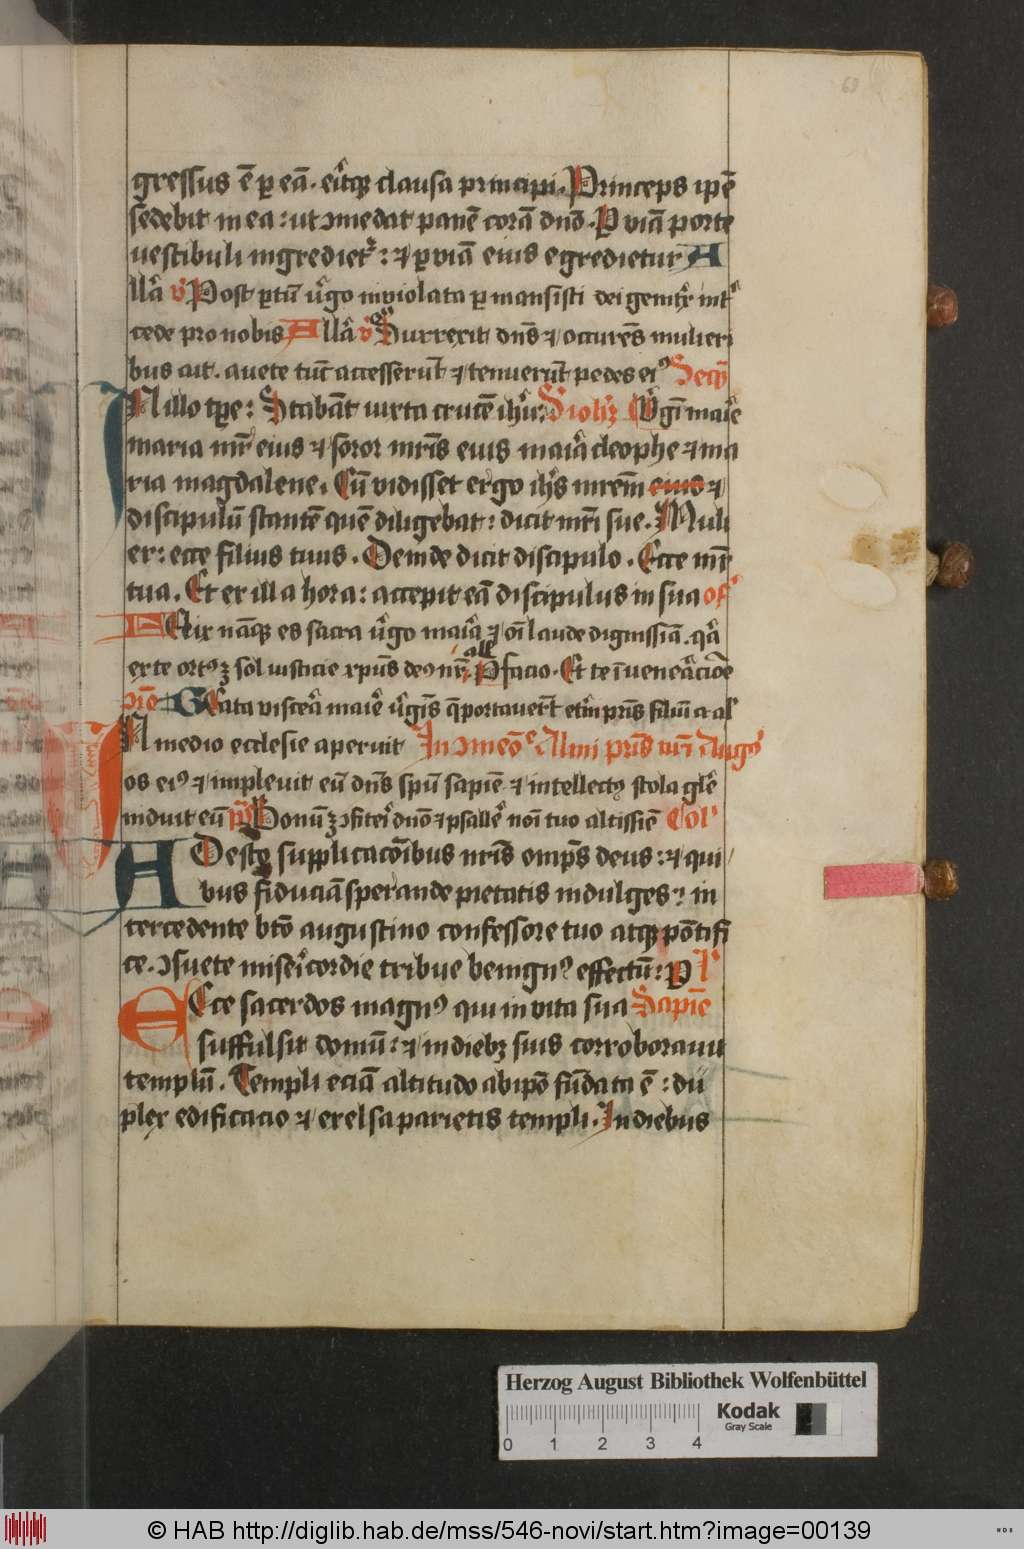 69
gressus ē ꝑ eā. eͥtqꝫ clausa principi. Princeps ip̄e
sedebit in ea: ut ꝯmedat panē corā dn̄o. Ꝑ viā porte
vestibuli ingrediet᷑: ⁊ ꝑ viā eius egredietur A
ll̄a ꝟ Post ꝑtū ỽgo inviolata ꝑmansisti dei genitͥx int
cede pro nobis All̄a ꝟ Surrexit dn̄s ⁊ occurēs mulieri
bus ait. avete tūc accesserūt ⁊ tenuerūt pedes eiꝰ Seqͣ
IN illo tp̄e: Stabāt iuxta crucē ih̄u: Seq
maria mr̄ eius ⁊ soror mr̄is eius maͥa cleophe ⁊ ma
ria magdalene. Cū vidisset ergo ih̄s mr̄em eius ⁊
discipulū stantē quē diligebat: dicit mr̄i sue. Muli
er: ecce filius tuus. Deinde dicit discipulo. Ecce mr̄
tua. Et ex illa hora: accepit eā discipulus in sua of
FElix nāqꝫ es sacra ỽgo maͥa ⁊ oī laude dignissīa. qͣ
ex te ortꝰ ꝫ sol iusticie xp̄us deꝰ nr̄ all̄ p̄facio. Et te ī veneͣcōe
ꝯīe Beata visceͣ maͥe ỽgīs q̄ portaverūt et̄ni pr̄is filiū a al̄
IN medio ecclesie aperuit In ꝯmeōe Almi pr̄is nr̄i Augꝰ
os eiꝰ ⁊ implevit eū dn̄s sp̄u sapiē ⁊ intellectꝰ stola gl̄e
induit eū p̄s Bonū ꝫ ꝯfiteri dn̄o ⁊ psallē noī tuo altissiē Col
ADestꝰ supplicacōibus nr̄is omp̄s deus: ⁊ qui
bus fiduciā sperande pietatis indulges: in
tercedente bt̄o augustino confessore tuo atqꝫ pōtifi
ce. ꝯsuete miseͥcordie tribue benignꝰ effectū: ꝑ
ECce sacerdos magnꝰ qui in vita sua Sapiē
suffulsit domū: ⁊ in diebꝫ suis corroboravit
templū. Templi eciā altitudo ab ip̄o fūdata ē: du
plex edificacio ⁊ excelsa parietis templi. In diebus
Herzog August Bibliothek Wolfenbüttel
0 1 2 3 4
Kodak
Gray Scale
© HAB http://diglib.hab.de/mss/546-novi/start.htm?image=00139